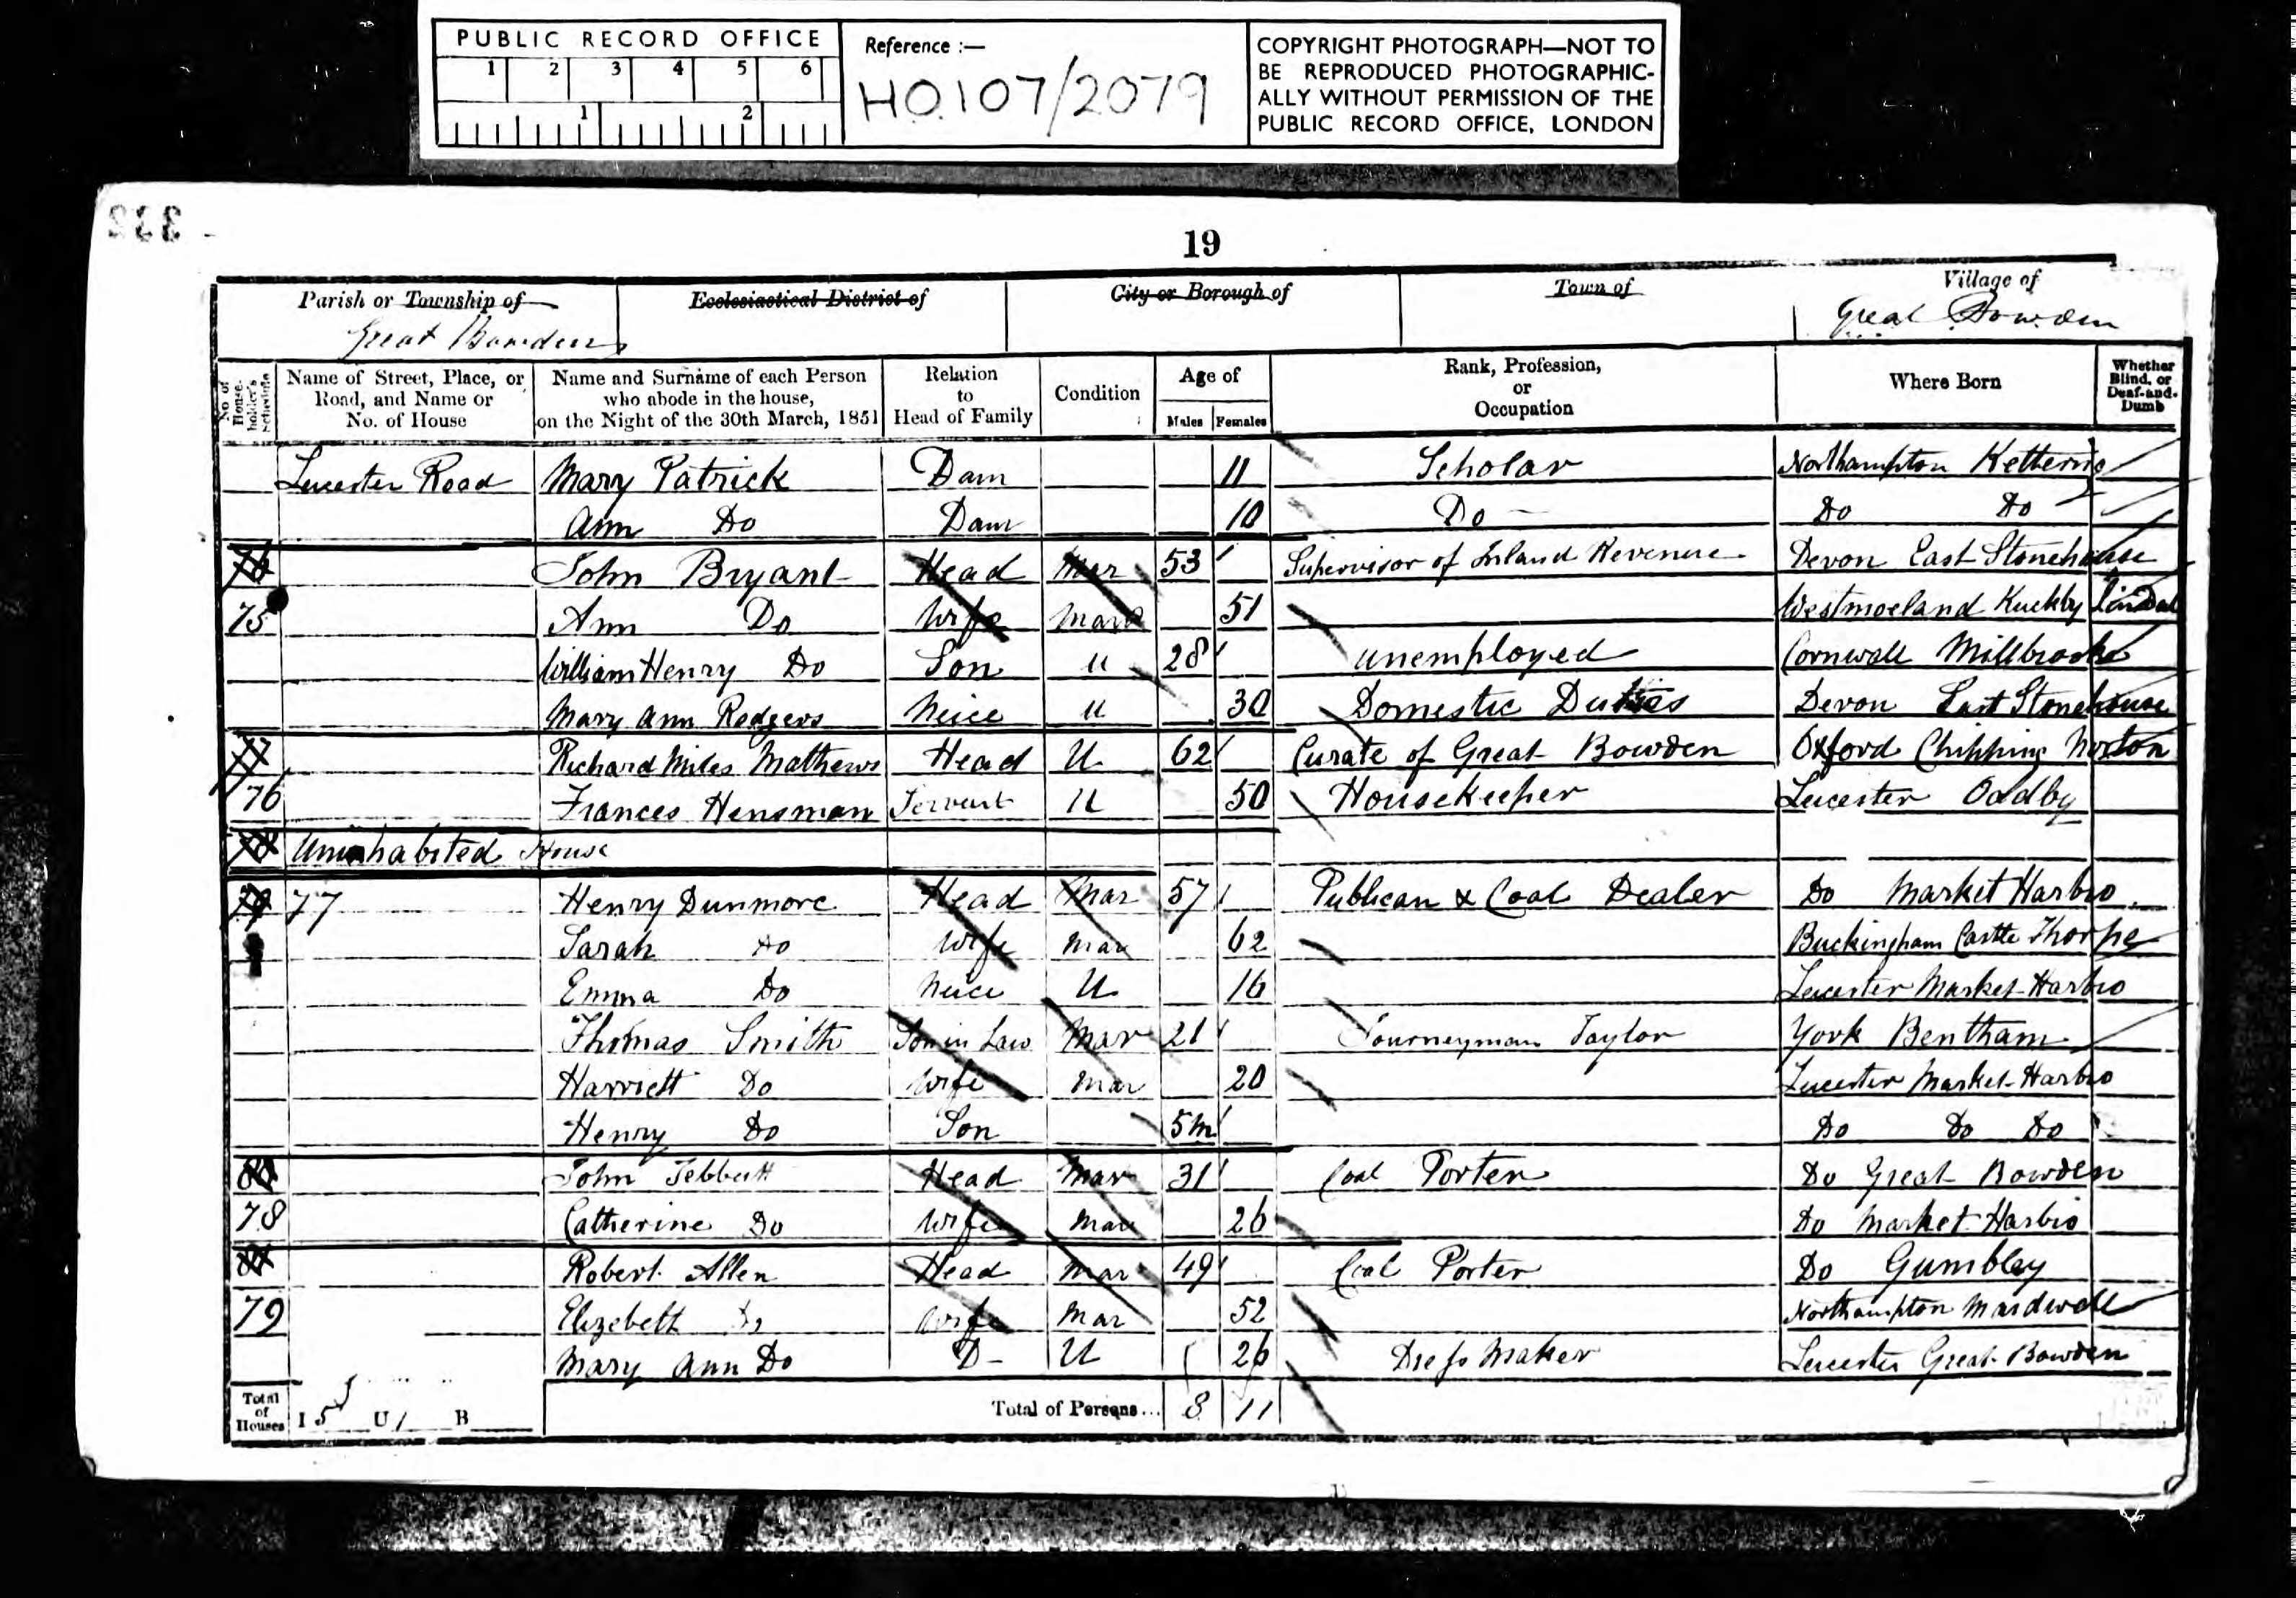 PUBLIC RECORD OFFICE
1 2 3 4 5 6
1 2
Reference :—
HO.107/2079
COPYRIGHT PHOTOGRAPH—NOT TO
BE REPRODUCED PHOTOGRAPHIC-
ALLY WITHOUT PERMISSION OF THE
PUBLIC RECORD OFFICE, LONDON
332
19
Parish or Township of Ecclesiastical District of City or Borough of Town of Village of
Great Bowden Great Bowden
No. of House-holder's Schedule
Name of Street, Place, or Road, and Name or No. of House
Name and Surname of each Person who abode in the house, on the Night of the 30th March, 1851
Relation to Head of Family
Condition
Age of
Males Females
Rank, Profession, or Occupation
Where Born
Whether Blind, or Deaf-and-Dumb
Leicester Road Mary Patrick Daur 11 Scholar Northampton Kettering
Ann Do Daur 10 Do Do Do
76 John Bryant Head Mar 53 Supervisor of Inland Revenue Devon East Stonehouse
75 Ann Do Wife Mar 51 Westmoreland
William Henry Do Son U 28 Unemployed Cornwall Millbrooke
Mary Ann Rodgers Neice U 30 Domestic Duties Devon East Stonehouse
77 Richard Miles Mathews Head U 62 Curate of Great Bowden Oxford Chipping Norton
76 Frances Hensman Servant U 50 Housekeeper Leicester Oadby
78 Uninhabited House
79 77 Henry Dunmore Head Mar 57 Publican & Coal Dealer Do Market Harbro
Sarah Do Wife Mar 62 Buckingham Castle Thorpe
Emma Do Neice U 16 Leicester Market Harbro
Thomas Smith Son in Law Mar 21 Journeyman Taylor York Bentham
Harriett Do Wife Mar 20 Leicester Market Harbro
Henry Do Son 5m Do Do Do
80 John Tebbutt Head Mar 31 Coal Porter Do Great Bowden
78 Catherine Do Wife Mar 26 Do Market Harbro
81 Robert Allen Head Mar 49 Coal Porter Do Gumbley
79 Elizebett Do Wife Mar 52 Northampton Mardwell
Mary Ann Do D- U 26 Dress Maker Leicester Great Bowden
Total of Houses I 5 U 1 B Total of Persons... 8 11